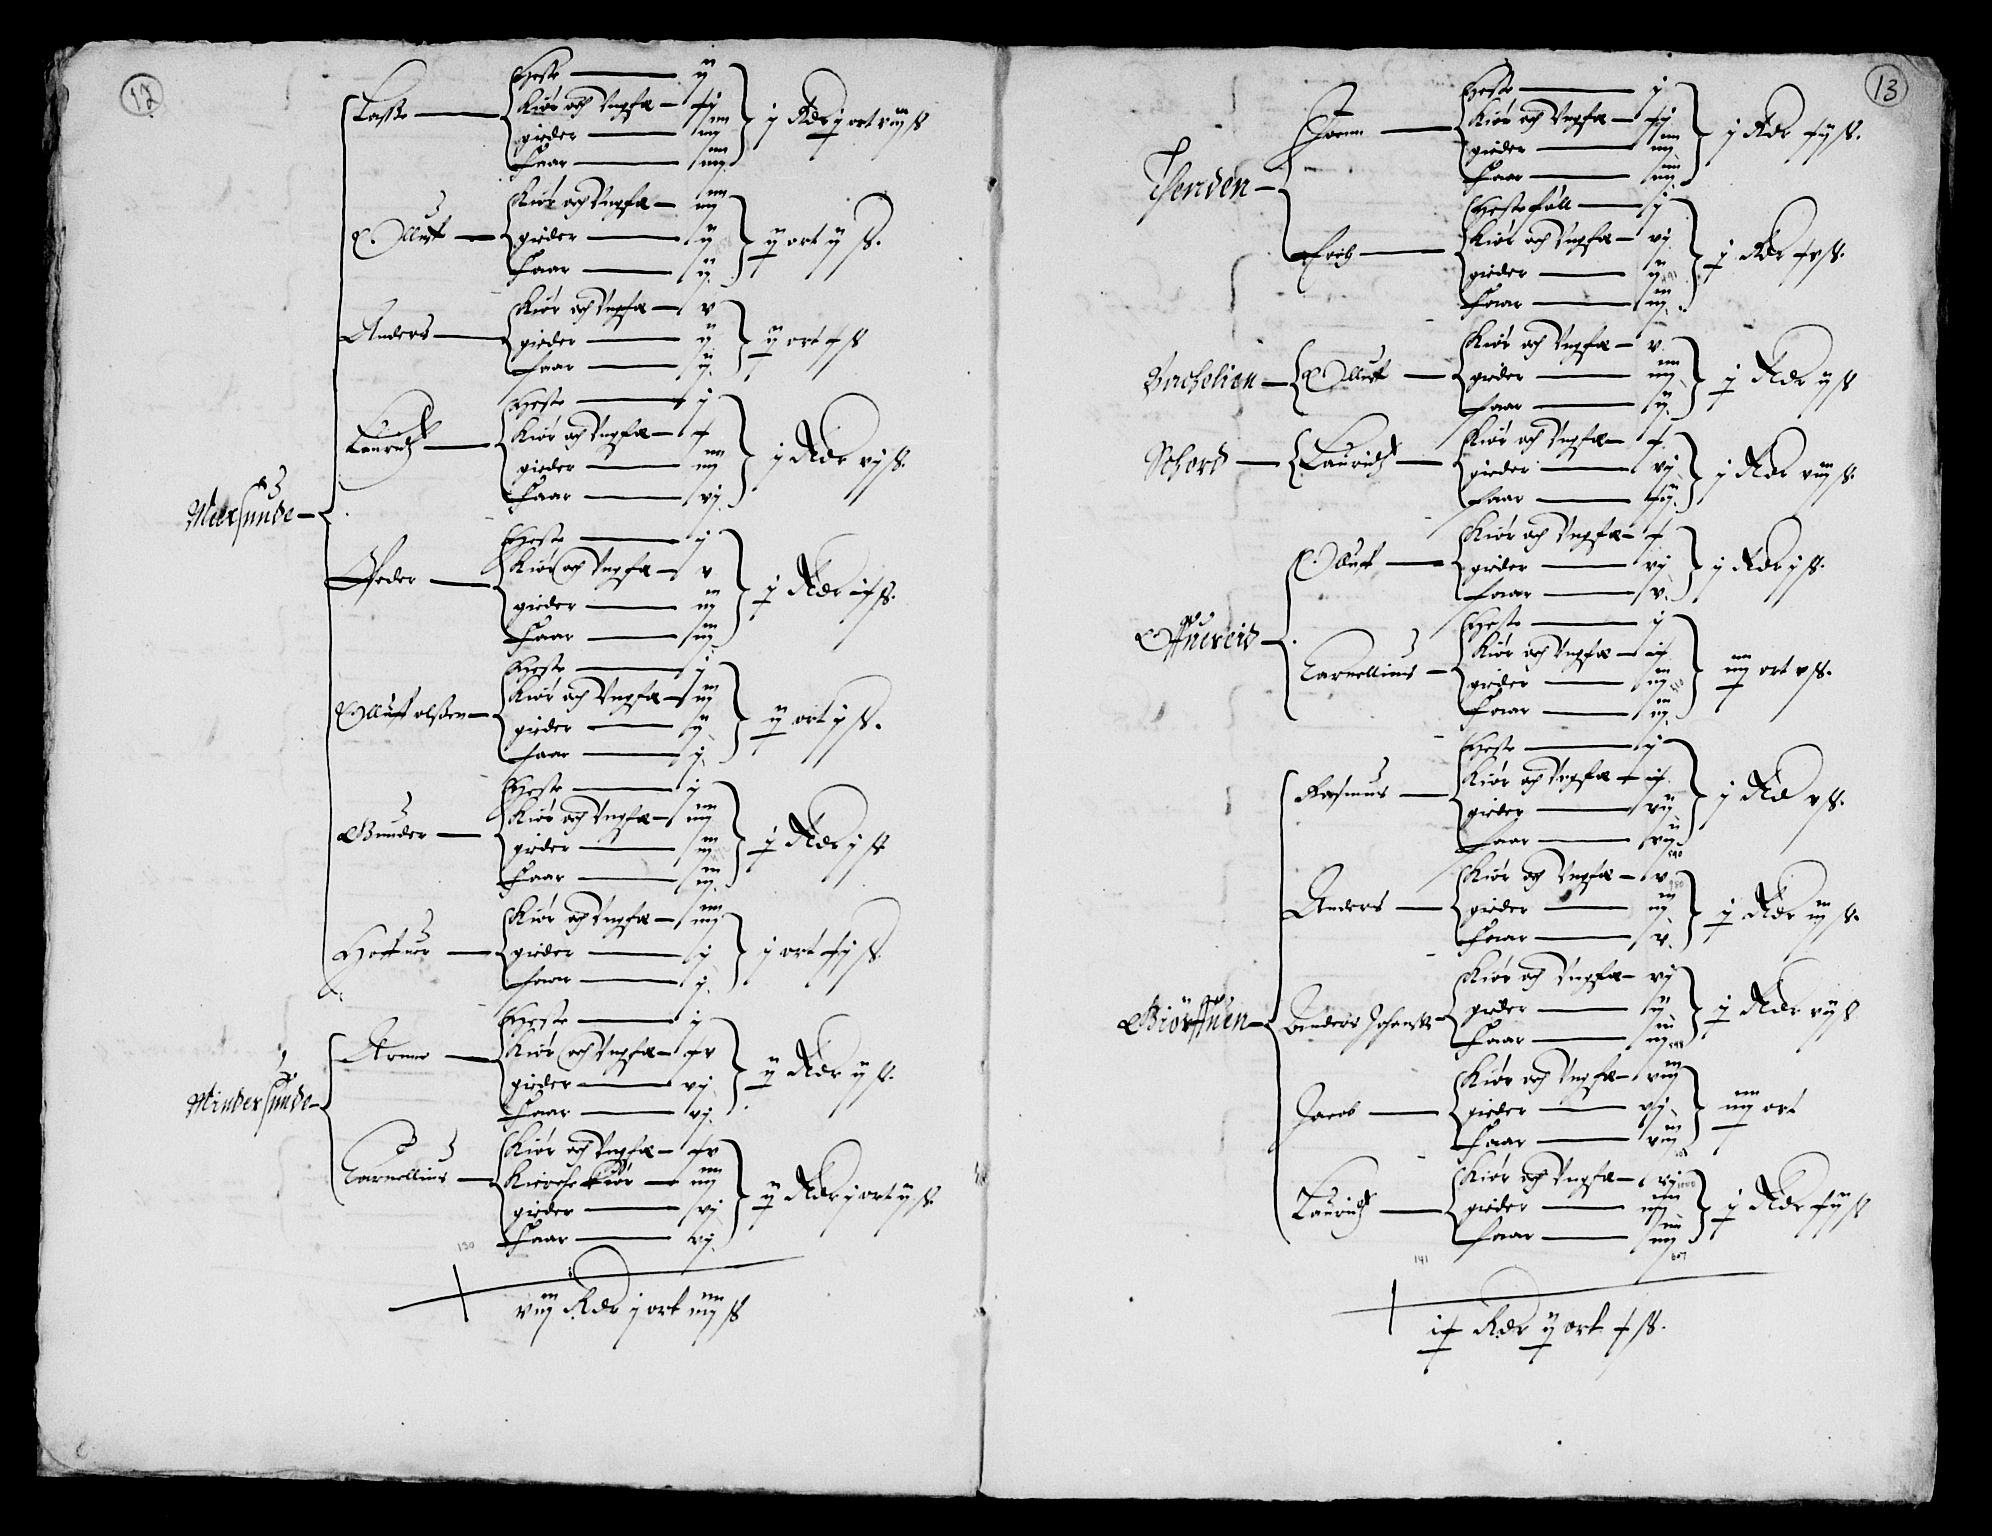 12
Meersunde
Lasse
Heste — ij
Kiør och Ungfæ — xj
gieder — iiij
faar — iiij
j Rdr j ort viij ß
Olluff
Kiør och Ungfæ — iiij
gieder — ij
faar — ij
ij ort ij ß.
Anders
Kiør och Ungfæ — v
gieder — ij
faar — ij
ij ort x ß
Lauridtz
Heste — j
Kiør och Ungfæ — x
gieder — iiij
faar — vj
j Rdr vj ß.
Peder
Heste — j
Kiør och Ungfæ — v
gieder — iij
faar — iij
j Rdr ix ß.
Olluff olßen
Heste — j
Kiør och Ungfæ — iij
gieder — ij
faar — j
ij ort j ß.
Gunder
Heste — j
Kiør och Ungfæ — iiij
gieder — iij
faar — iij
j Rdr j ß
Kiør och Ungfæ — iiij
gieder — j
faar — j
j ort xj ß
Mindersunde
Arnne
Heste — j
Kiør och Ungfæ — xv
gieder — vj
faar — vj
ij Rdr ij ß.
Carnellius
Kiør och Ungfæ — xv
Kirche Kiør — iiij
gieder — vj
faar — vj
ij Rdr j ort ij ß.
130
viij Rdr j ort iiij ß
13
Joenn
Heste — j
Kiør och Ungfæ — xj
gieder — iiij
faar — iiij
j Rdr xij ß.
Erich
Hestefoll — j
Kiør och Ungfæ — vj
gieder — ij
faar — iij
j Rdr xv ß.
Olluff
Kiør och Ungfæ — v
gieder — iiij
faar — ij
j Rdr ij ß
Lauridtz
Kiør och Ungfæ — x
gieder — vj
faar — xij
j Rdr viij ß.
Olluff
Kiør och Ungfæ — x
gieder — vj
faar — v
j Rdr j ß.
Carnellius
Heste — j
Kiør och Ungfæ — ix
gieder — iij
faar — iij
iiij ort v ß.
Rasmus
Heste — j
Kiør och Ungfæ — ix
gieder — vij
faar — vij
j Rd v ß.
Anders
Kiør och Ungfæ — v
gieder — iij
faar — v
j Rdr iij ß.
Anders Johanß
Kiør och Ungfæ — vj
gieder — ij
faar — iij
j Rdr vij ß
Jacob
Kiør och Ungfæ — viij
gieder — vj
faar — viij
iiij ort
Lauridtz
Kiør och Ungfæ — vj
gieder — iiij
faar — iiij
j Rdr xij ß
141
607
ix Rdr ij ort x ß.